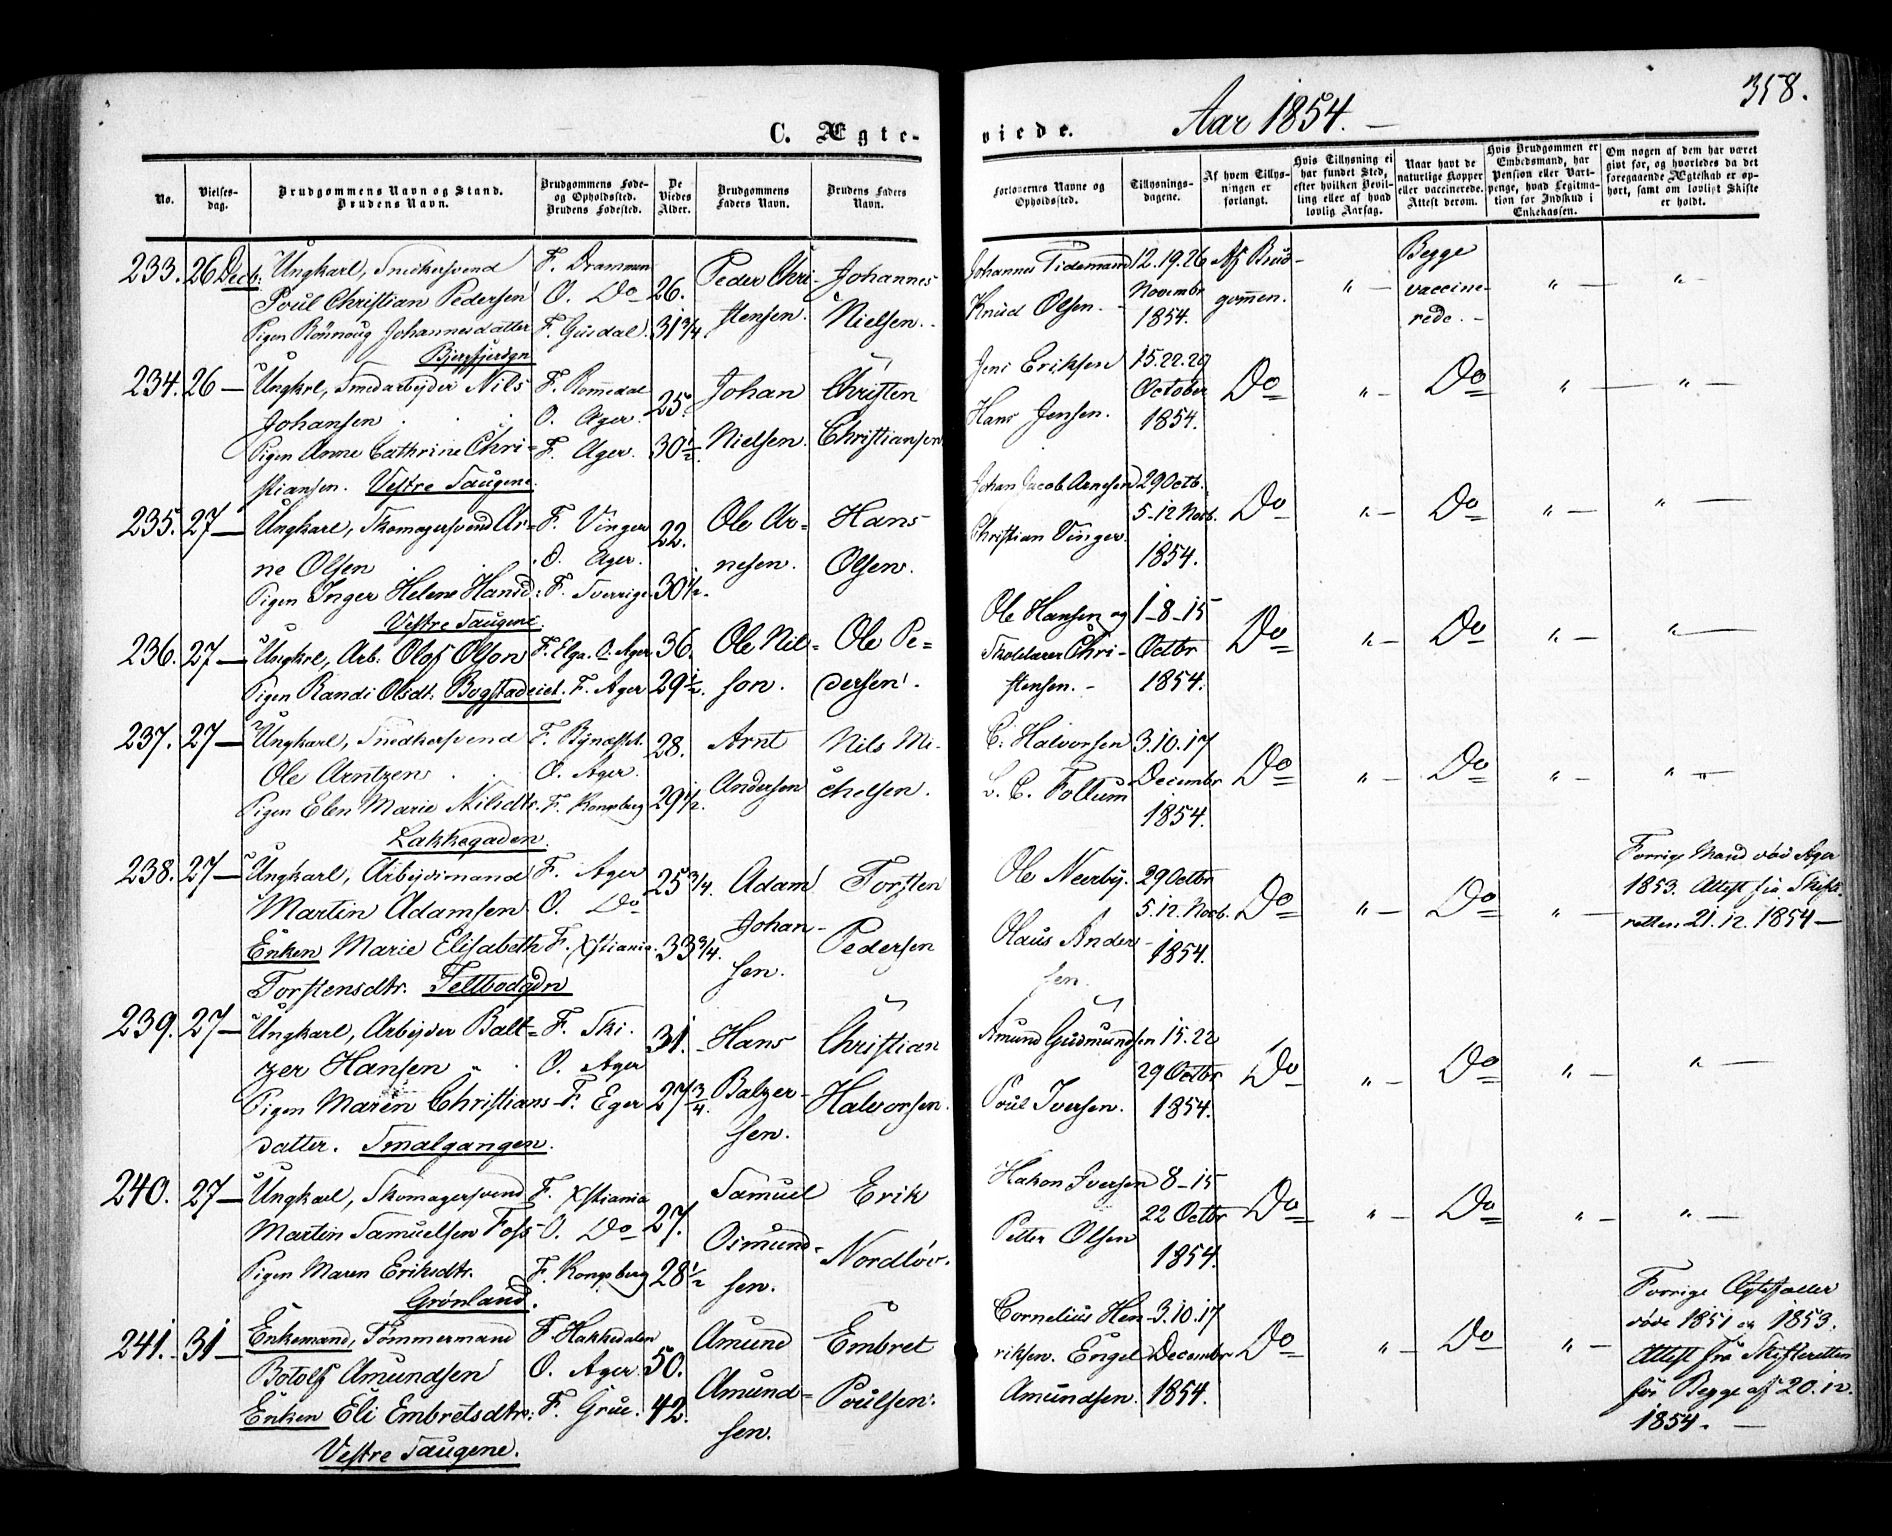 358.
C. Ægteviede. Aar 1854.
No.
Vielses-
dag.
Brudgommens Navn og Stand.
Brudens Navn.
Brudgommens Føde-
og Opholdssted.
Brudens Fødested.
De
Viedes
Alder.
Brudgommens
Faders Navn.
Brudens Faders
Navn.
Forlovernes Navne og
Opholdssted.
Tillysnings-
dagene.
Af hvem Tillys-
ningen er
forlangt.
Hvis Tillysning ei
har fundet Sted,
efter hvilken Bevil-
ling eller af hvad
lovlig Aarsag.
Naar havt de
naturlige Kopper
eller vaccinerede.
Attest derom.
Hvis Brudgommen er
Embedsmand, har
Pension eller Vart-
penge, hvad Legitma-
tion for Indskud i
Enkekassen.
Om nogen af dem har været
givt før, og hvorledes da det
foregaaende Ægteskab er op-
hørt, samt om lovligt Skifte
er holdt.
233. 26 Decb.
Ungkarl, Snedkersvend
Poul Christian Pedersen
Pigen Rønnoug Johannesdatter
Bjergfjerdgn
F. Drammen
O. Do
F. Gusdal.
26.
31 3/4
Peder Chri-
stensen.
Johannes
Nielsen.
Johannes Tidemand
Knud Olsen. -
12. 19. 26
Novembr
1854.
Af Brud-
gommen.
" -
Begge
vaccine-
rede. -
" -
" -
234. 26 -
Ungkrl, Smedarbejder Nils
Johansen
Pigen Anne Cathrine Chri-
stiansen. Vestre Saugene.
F. Romedal
O. Ager.
F. Ager.
25.
30 1/2.
Johan
Nielsen.
Christen
Christiansen
Jens Eriksen
Hans Jensen.
15. 22. 29
October
1854.
Do
" -
Do
" -
" -
235. 27 -
Ungkarl, Skomagersvend Ar-
ne Olsen
Pigen Inger Helene Hansd:
Vestre Saugene.
F. Vinger
O. Ager.
F. Sverrige
22.
30 1/2.
Ole Ar-
nesen.
Hans
Olsen.
Johan Jacob Arnesen
Christian Vinger.
29 Octb.
5-12 Novb.
1854.
Do
" -
Do
" -
" -
236. 27 -
Ungkrl, Arb. Olof Olson
Pigen Randi Olsdt: Bogstadeiet.
F. Elga. O. Ager
F. Ager
36.
29 1/2.
Ole Nil-
son.
Ole Pe-
dersen.
Ole Hansen og
Skolelærer Chri-
stensen. -
1-8-15
Octbr
1854.
Do
" -
Do
" -
" -
237. 27 -
Ungkarl, Snedkersvend
Ole Arntzen
Pigen Elen Marie Nilsdtr.
Lakkegaden.
F. Bynæsset.
O. Ager.
F. Kongsberg
28.
29 1/2.
Arnt
Andersen
Nils Mi-
chelsen.
C. Halvorsen
L. C. Follum
3. 10. 17
Decembr
1854.
Do
" -
Do
" -
" -
238. 27 -
Ungkarl, Arbejdsmand
Martin Adamsen
Enken Marie Elisabeth
Torstensdtr. Teltbodgdn
F. Ager
O. Do
F. Xstiania.
25 3/4.
33 3/4.
Adam
Johan-
sen.
Torsten
Pedersen
Ole Neerby.
Olaus Ander-
sen.
29 Octbr
5. 12. Novb.
1854.
Do
" -
Do
" -
Forrige Mand død Ager
1853. Attest fra Skifte-
retten 21. 12. 1854 -
239. 27 -
Ungkarl, Arbejder Balt-
zer Hansen "
Pigen Maren Christians-
datter. Smalgangen.
F. Ski.
O. Ager
F. Eger
31.
27 3/4.
Hans
Balzer-
sen.
Christian
Halvorsen.
Amund Gudmundsen
Poul Iversen.
15. 22
29 Octbr
1854.
Do
" -
Do
" -
" -
240. 27 -
Ungkarl, Skomagersvend
Martin Samuelsen Foss
Pigen Maren Eriksdtr.
Grønland.
F. Xstiania
O. Do
F. Kongsberg
27.
28 1/2
Samuel
Osmund-
sen.
Erik
Nordløv.
Hakon Iversen
Petter Olsen
8-15
22 Octbr
1854.
Do
" -
Do
" -
" -
241. 31 -
Enkemand, Tømmermand
Botolf Amundsen
Enken Eli Embretsdtr.
Vestre Saugene.
F. Hakkedalen
O. Ager.
F. Grue.
50.
42.
Amund
Amund-
sen.
Embret
Poulsen.
Cornelius Hen-
riksen. Engel
Amundsen.
3. 10. 17
Decembr
1854.
Do
" -
Do
" -
Forrige Ægtefæller
døde 1851 og 1853.
Attest fra Skifteretten
for Begge af 20. 12.
1854. -